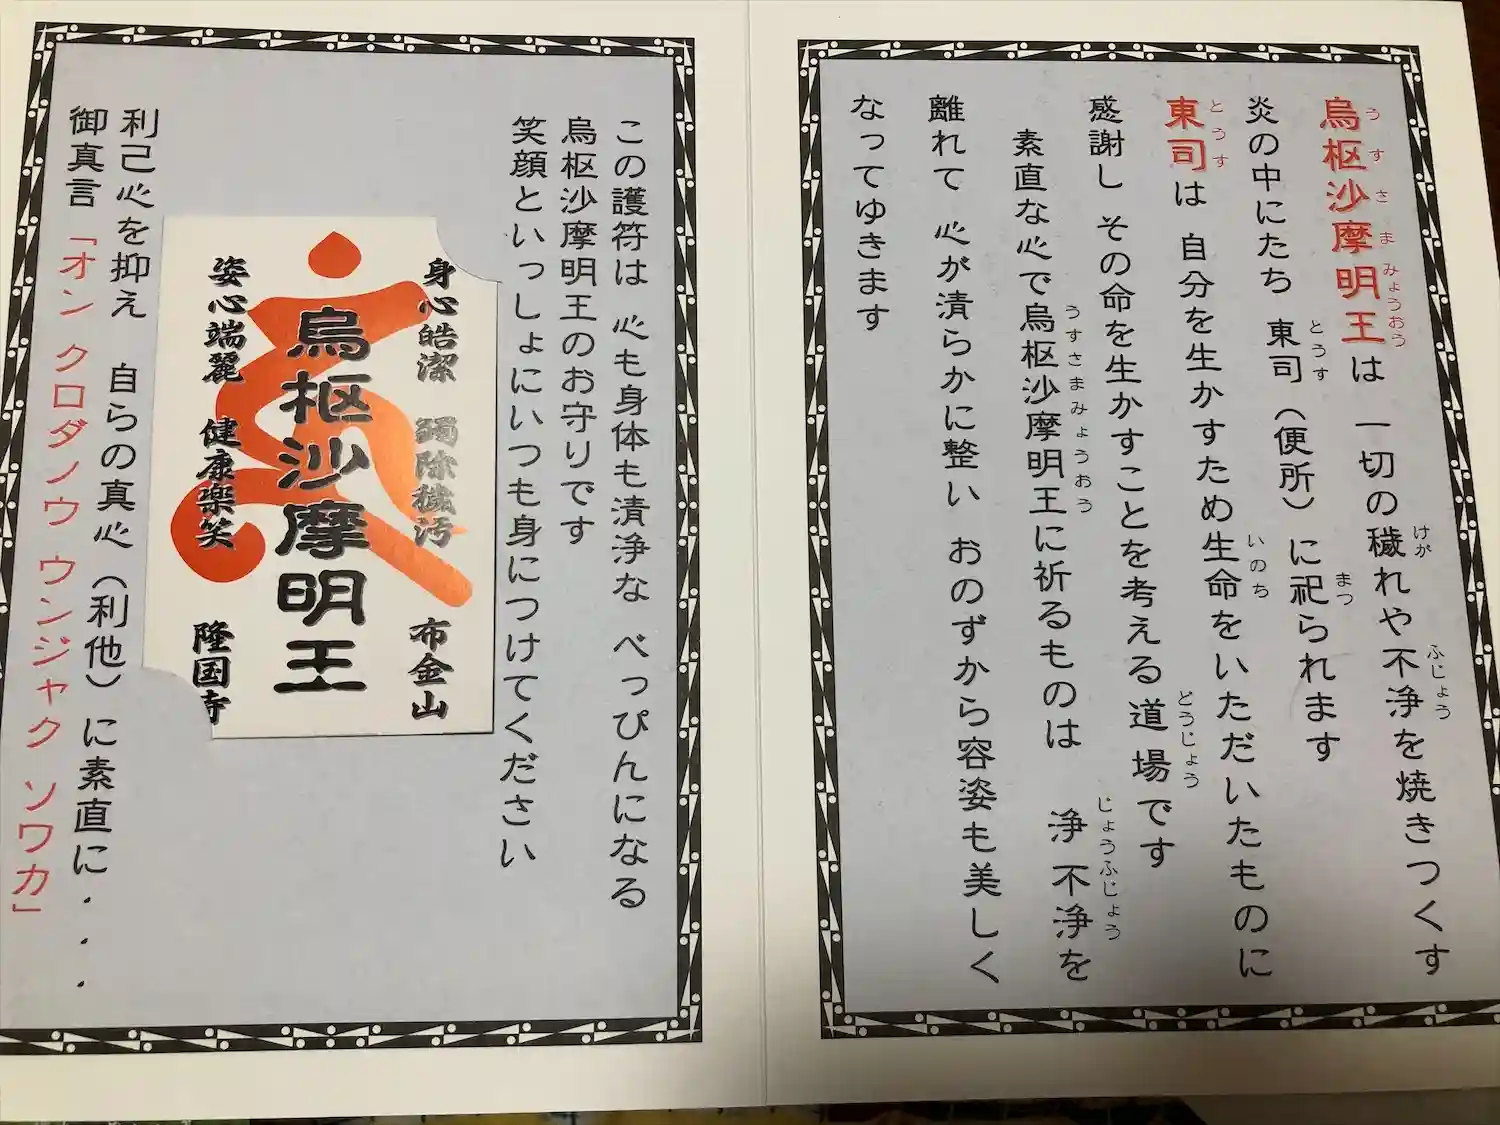 烏枢沙摩明王は 一切の穢れや不浄を焼きつくす
うすさまみょうおう
けが
ふじょう
炎の中にたち 東司（便所）に祀られます
とうす
まつ
東司は 自分を生かすため生命をいただいたものに
とうす
いのち
感謝し その命を生かすことを考える道場です
どうじょう
素直な心で烏枢沙摩明王に祈るものは 浄不浄を
うすさまみょうおう
じょうふじょう
離れて 心が清らかに整い おのずから容姿も美しく
なってゆきます
この護符は 心も身体も清浄な べっぴんになる
烏枢沙摩明王のお守りです
笑顔といっしょにいつも身につけてください
身心皓潔 蠲除穢汚 布金山
烏枢沙摩明王
姿心端麗 健康楽笑 隆国寺
利己心を抑え 自らの真心（利他）に素直に・・・
御真言「オン クロダノウ ウンジャク ソワカ」